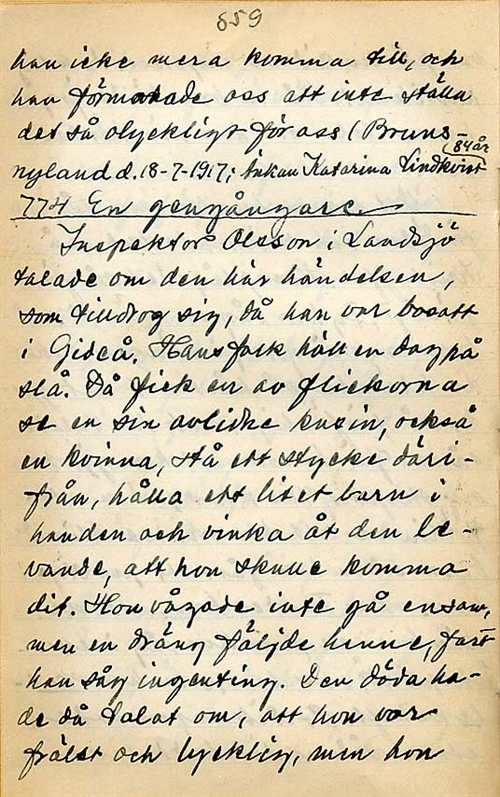 859
han icke mera komma till, och
han förmanade oss att inte ställa
det så olyckligt för oss (Bruns-
nyland d. 18-7-1917; änkan Katarina Lindkvist
(84 år
774 En gengångare.
Inspektor Olsson i Landsjö
talade om den här händelsen,
som tilldrog sig, då han var bosatt
i Gideå. Hans folk höll en dag på
slå. Då fick en av flickorna
se en sin avlidne kusin, också
en kvinna, stå ett stycke däri-
från, hålla ett litet barn i
handen och vinka åt den le-
vande, att hon skulle komma
dit. Hon vågade inte gå ensam,
men en dräng följde henne, fast
han såg ingenting. Den döda ha-
de då talat om, att hon var
frälst och lycklig, men hon